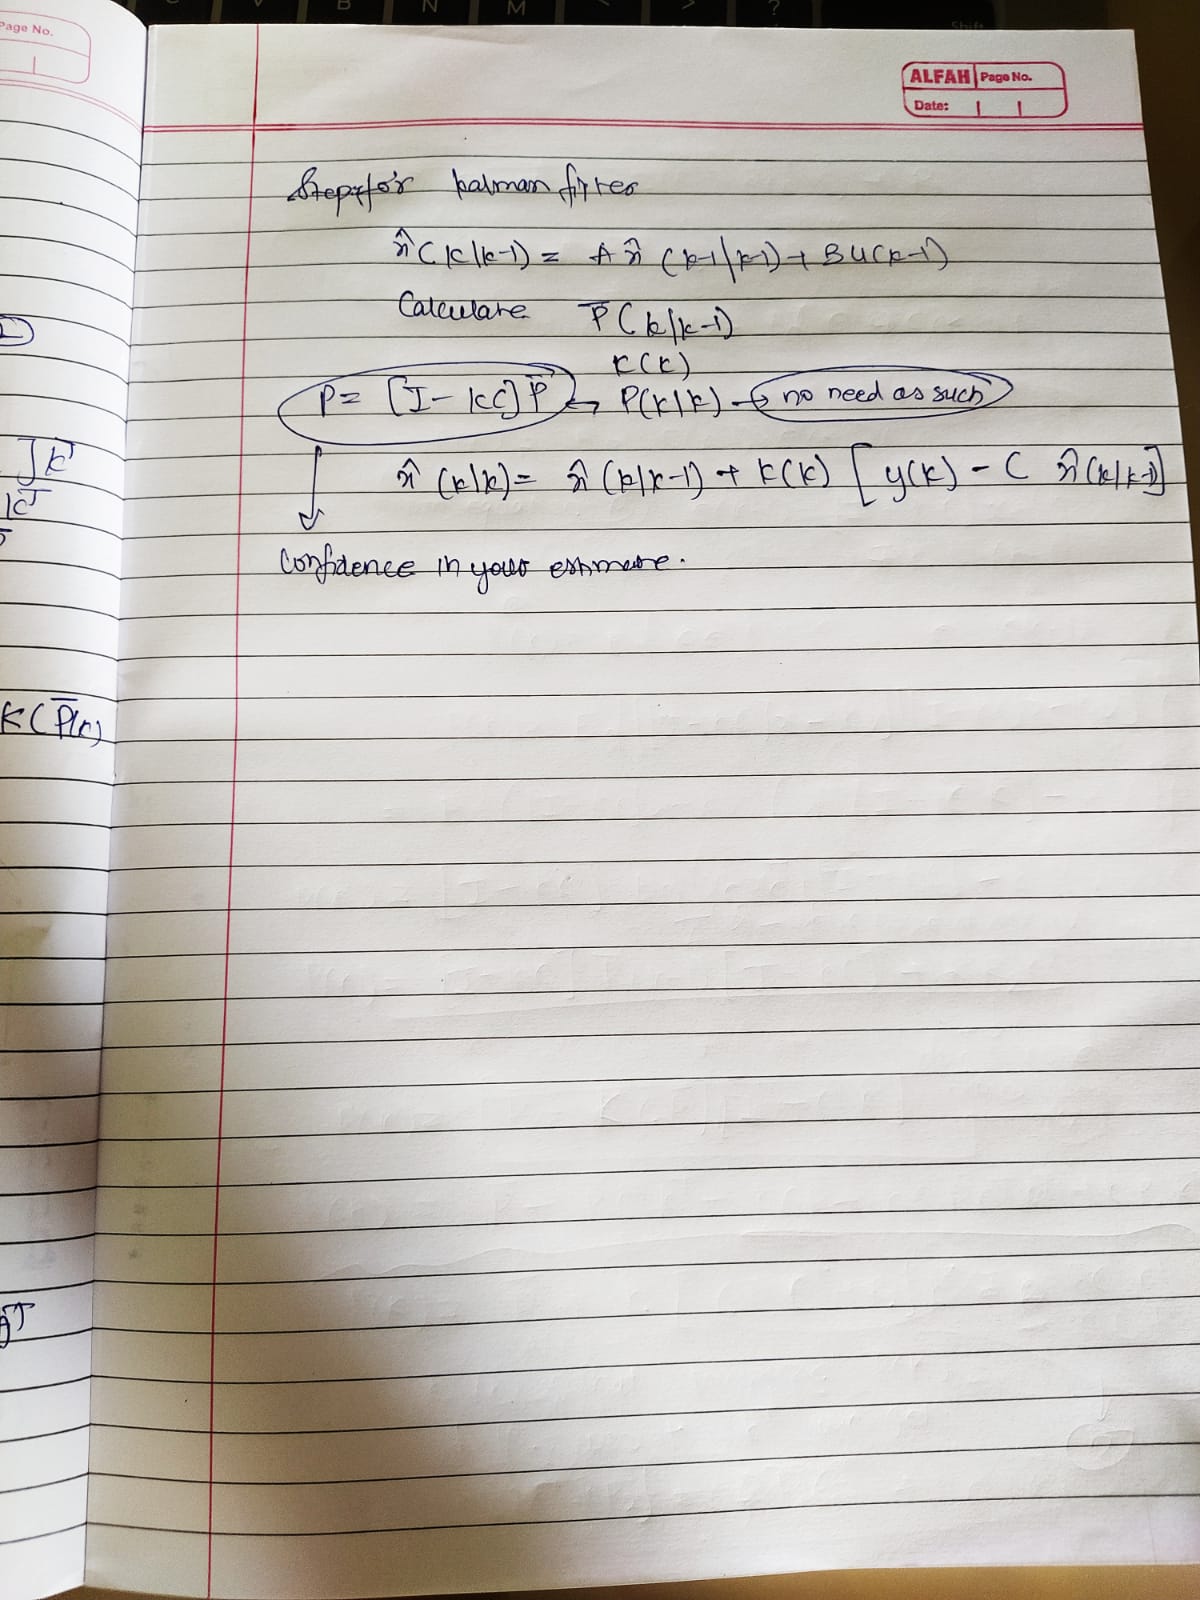 Page No.
ALFAH Page No.
Date:
Steps for kalman filter
x̂(k|k-1) = A x̂(k-1|k-1) + BU(k-1)
Calculate P̄(k|k-1)
K(k)
P = [I - KC] P̄ ← P(k|k) → no need as such
x̂(k|k) = x̂(k|k-1) + K(k) [y(k) - C x̂(k|k-1)]
Confidence in your estimate.
]K^T
K^T
K(P̄(k)
A^T
B N M < > ?
Shift